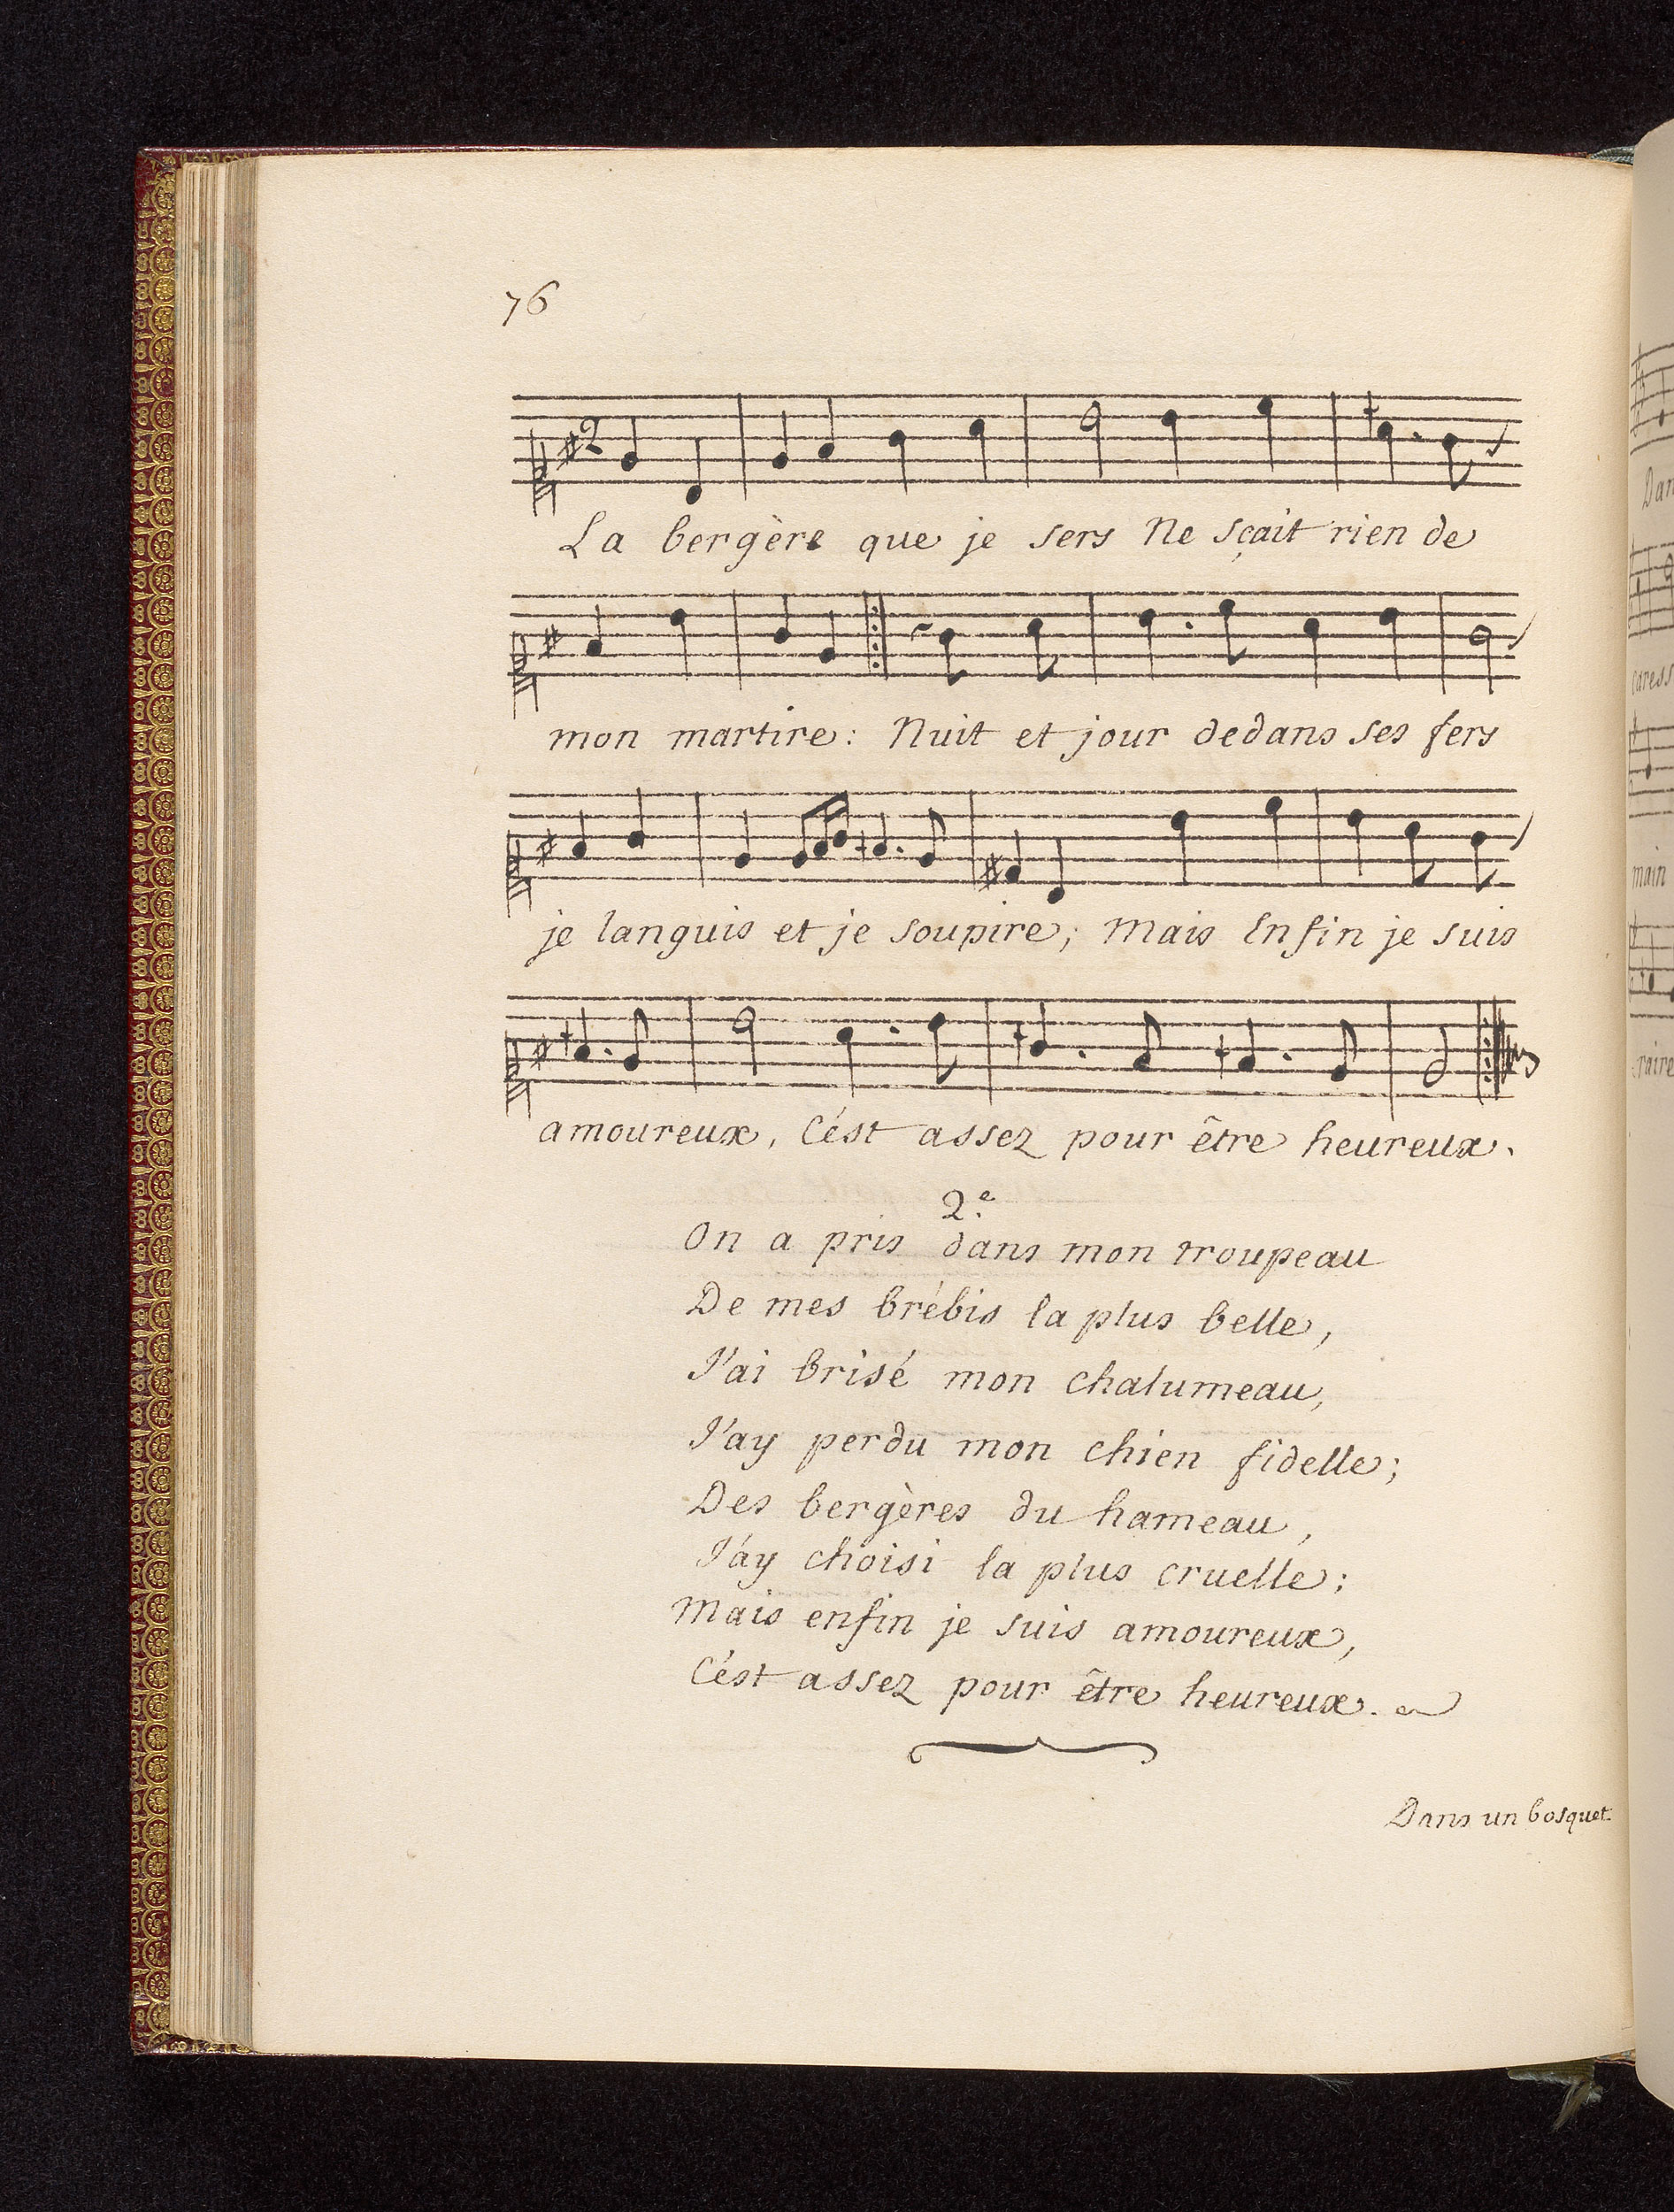 76
La bergère que je sers Ne sçait rien de
mon martire: Nuit et jour dedans ses fers
je languis et je soupire; Mais Enfin je suis
amoureux, C'ést assez pour être heureux.
2.e
On a pris dans mon troupeau
De mes brébis la plus belle,
J'ai brisé mon chalumeau,
J'ay perdu mon chien fidelle;
Des bergères du hameau,
J'ay choisi la plus cruelle;
Mais enfin je suis amoureux,
C'ést assez pour être heureux.
Dans un bosquet.